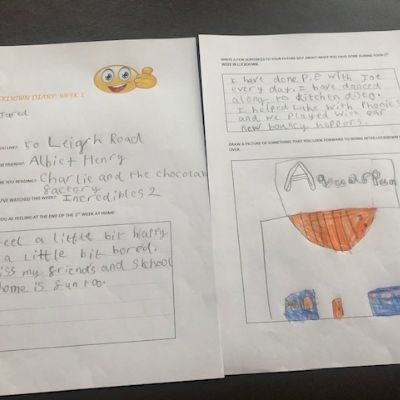 CKDOWN DIARY: WEEK 1
Jared
50 Leigh Road
FRIEND? Albie + Henry
YOU READING? Charlie and the chocolat
factory
'VE WATCHED THIS WEEK? Incredibles 2
YOU FEELING AT THE END OF THE 1st WEEK AT HOME?
feel a little bit happy
a little bit bored.
iss my friends and school
home is fun too.
WRITE A FEW SENTENCES TO YOUR FUTURE SELF ABOUT WHAT YOU HAVE DONE DURING YOUR 1st
WEEK IN LOCKDOWN.
I have done P.E with Joe
every day. I have danced
along to Kitchen disco.
I helped Luke with Phonics
and we played with our
new bouncy hoppers.
DRAW A PICTURE OF SOMETHING THAT YOU LOOK FORWARD TO DOING AFTER LOCKDOWN
OVER.
Aquarium